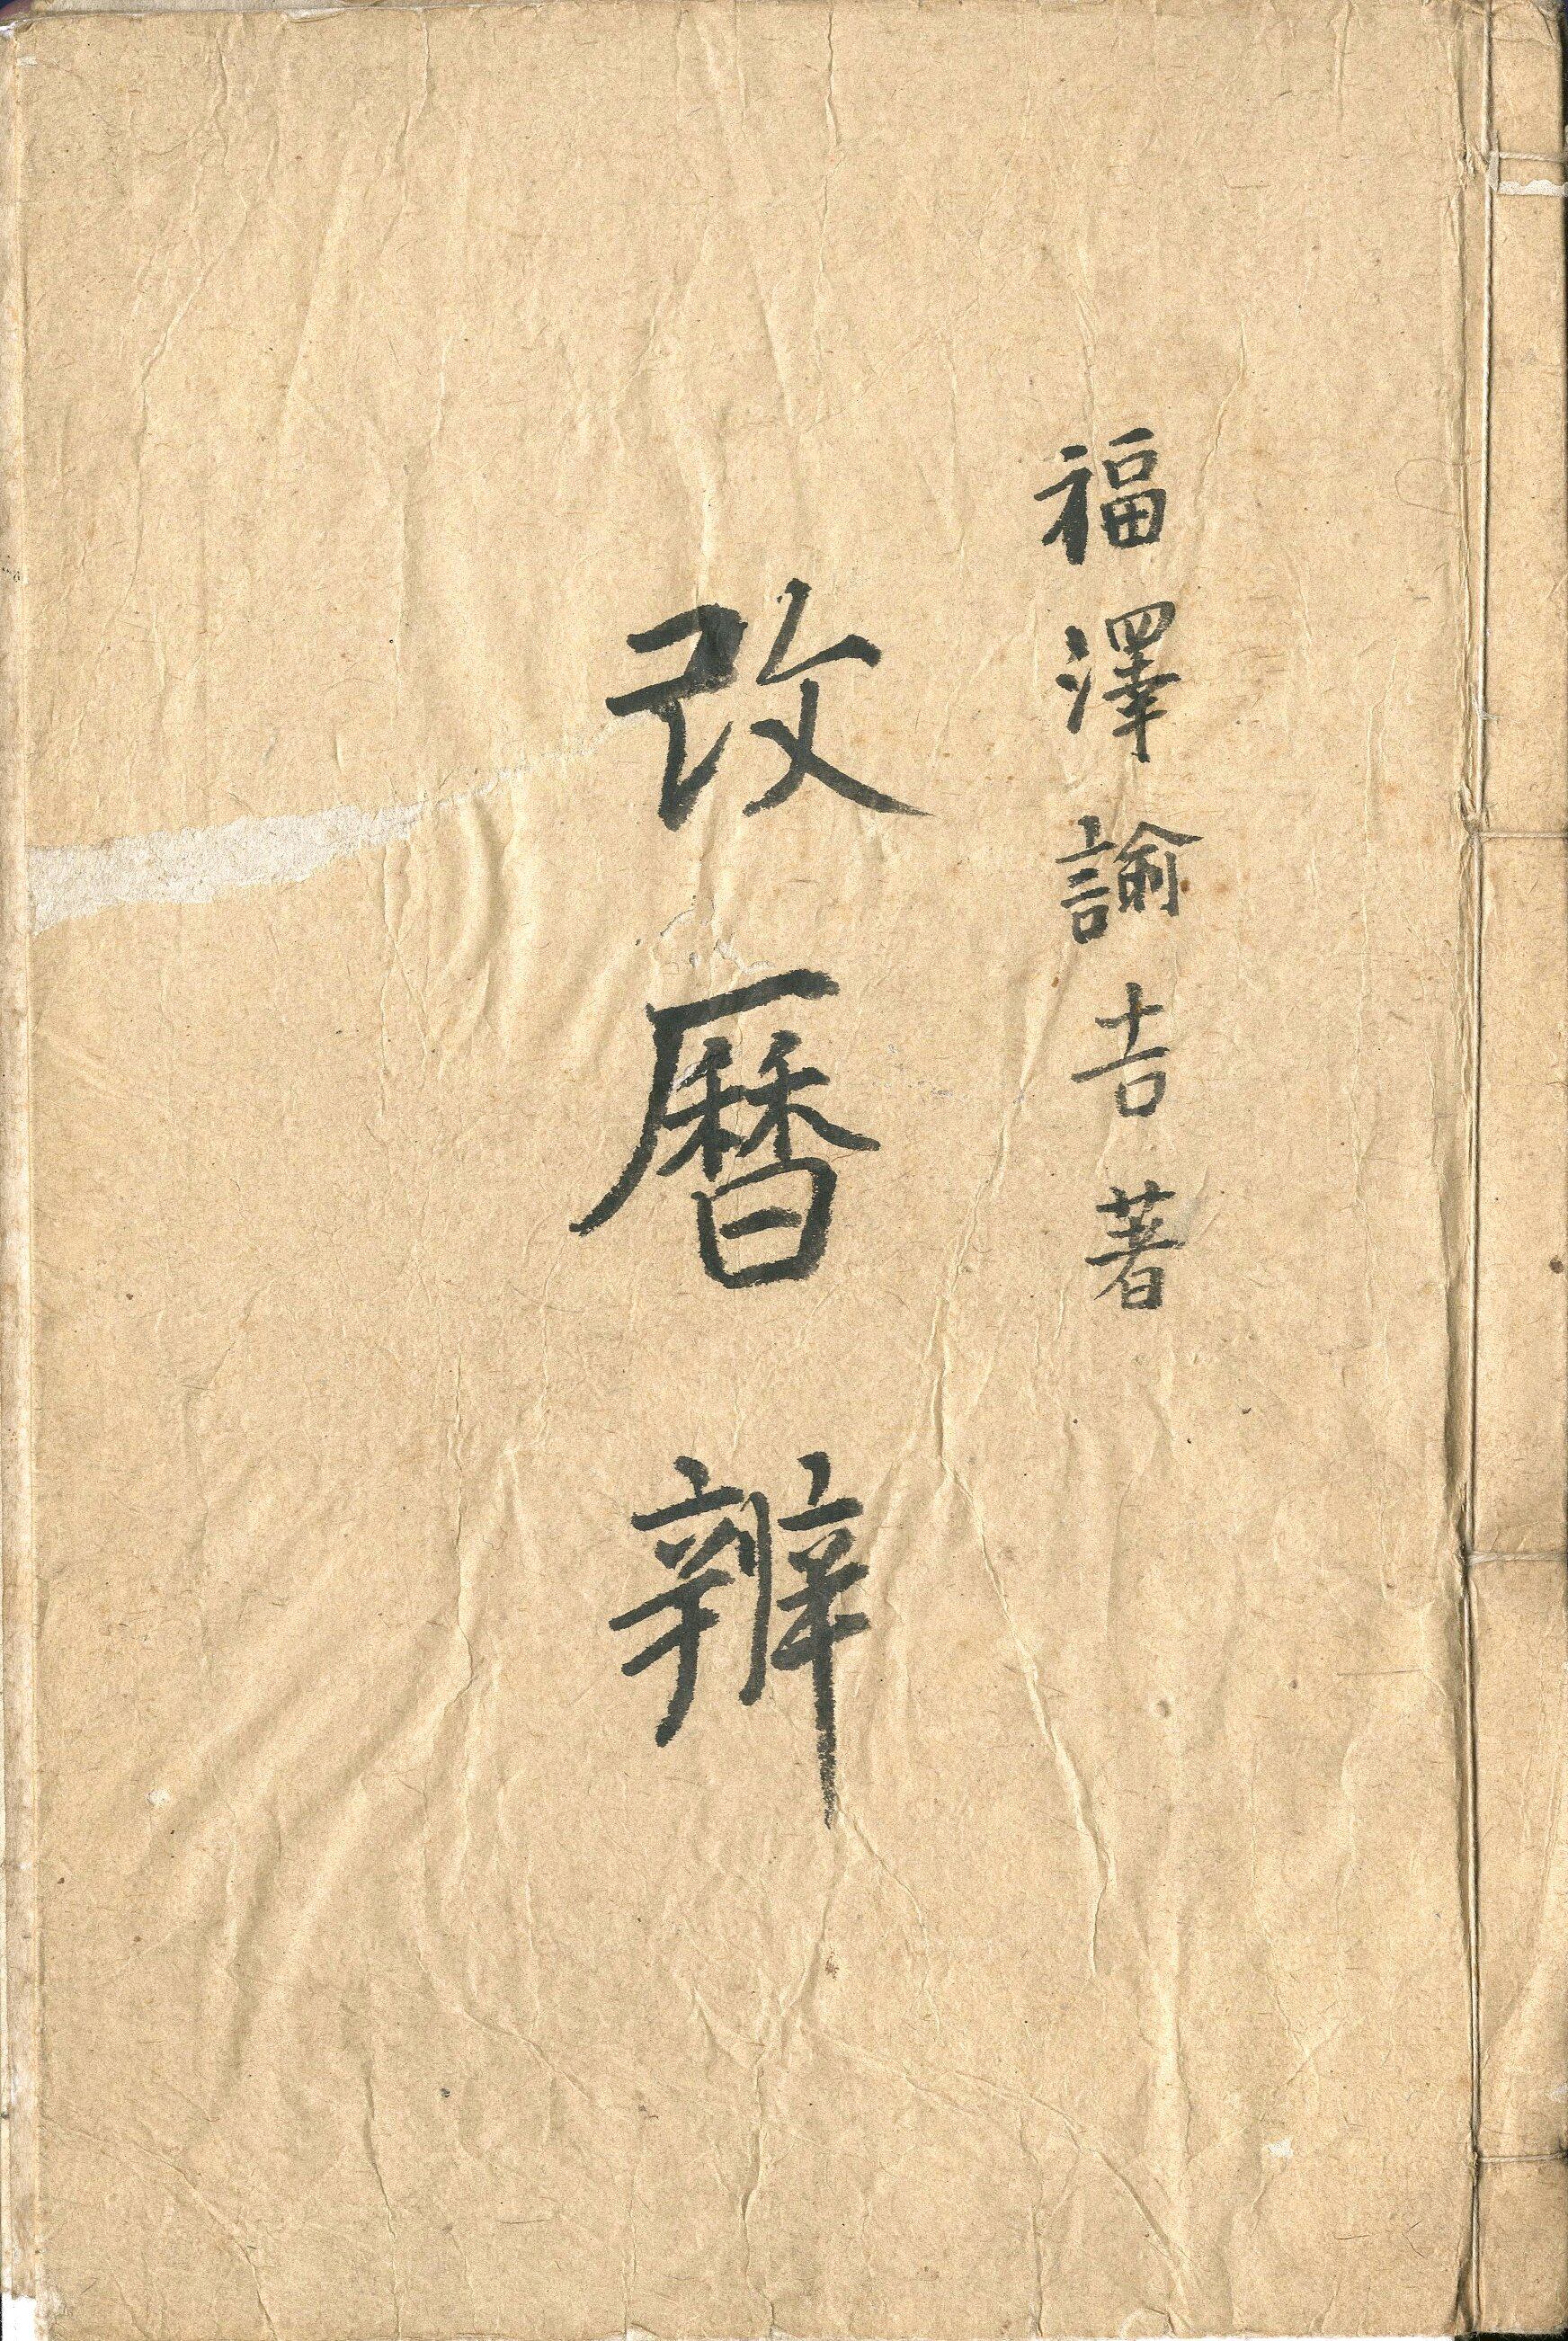 福澤諭吉著
改暦辨